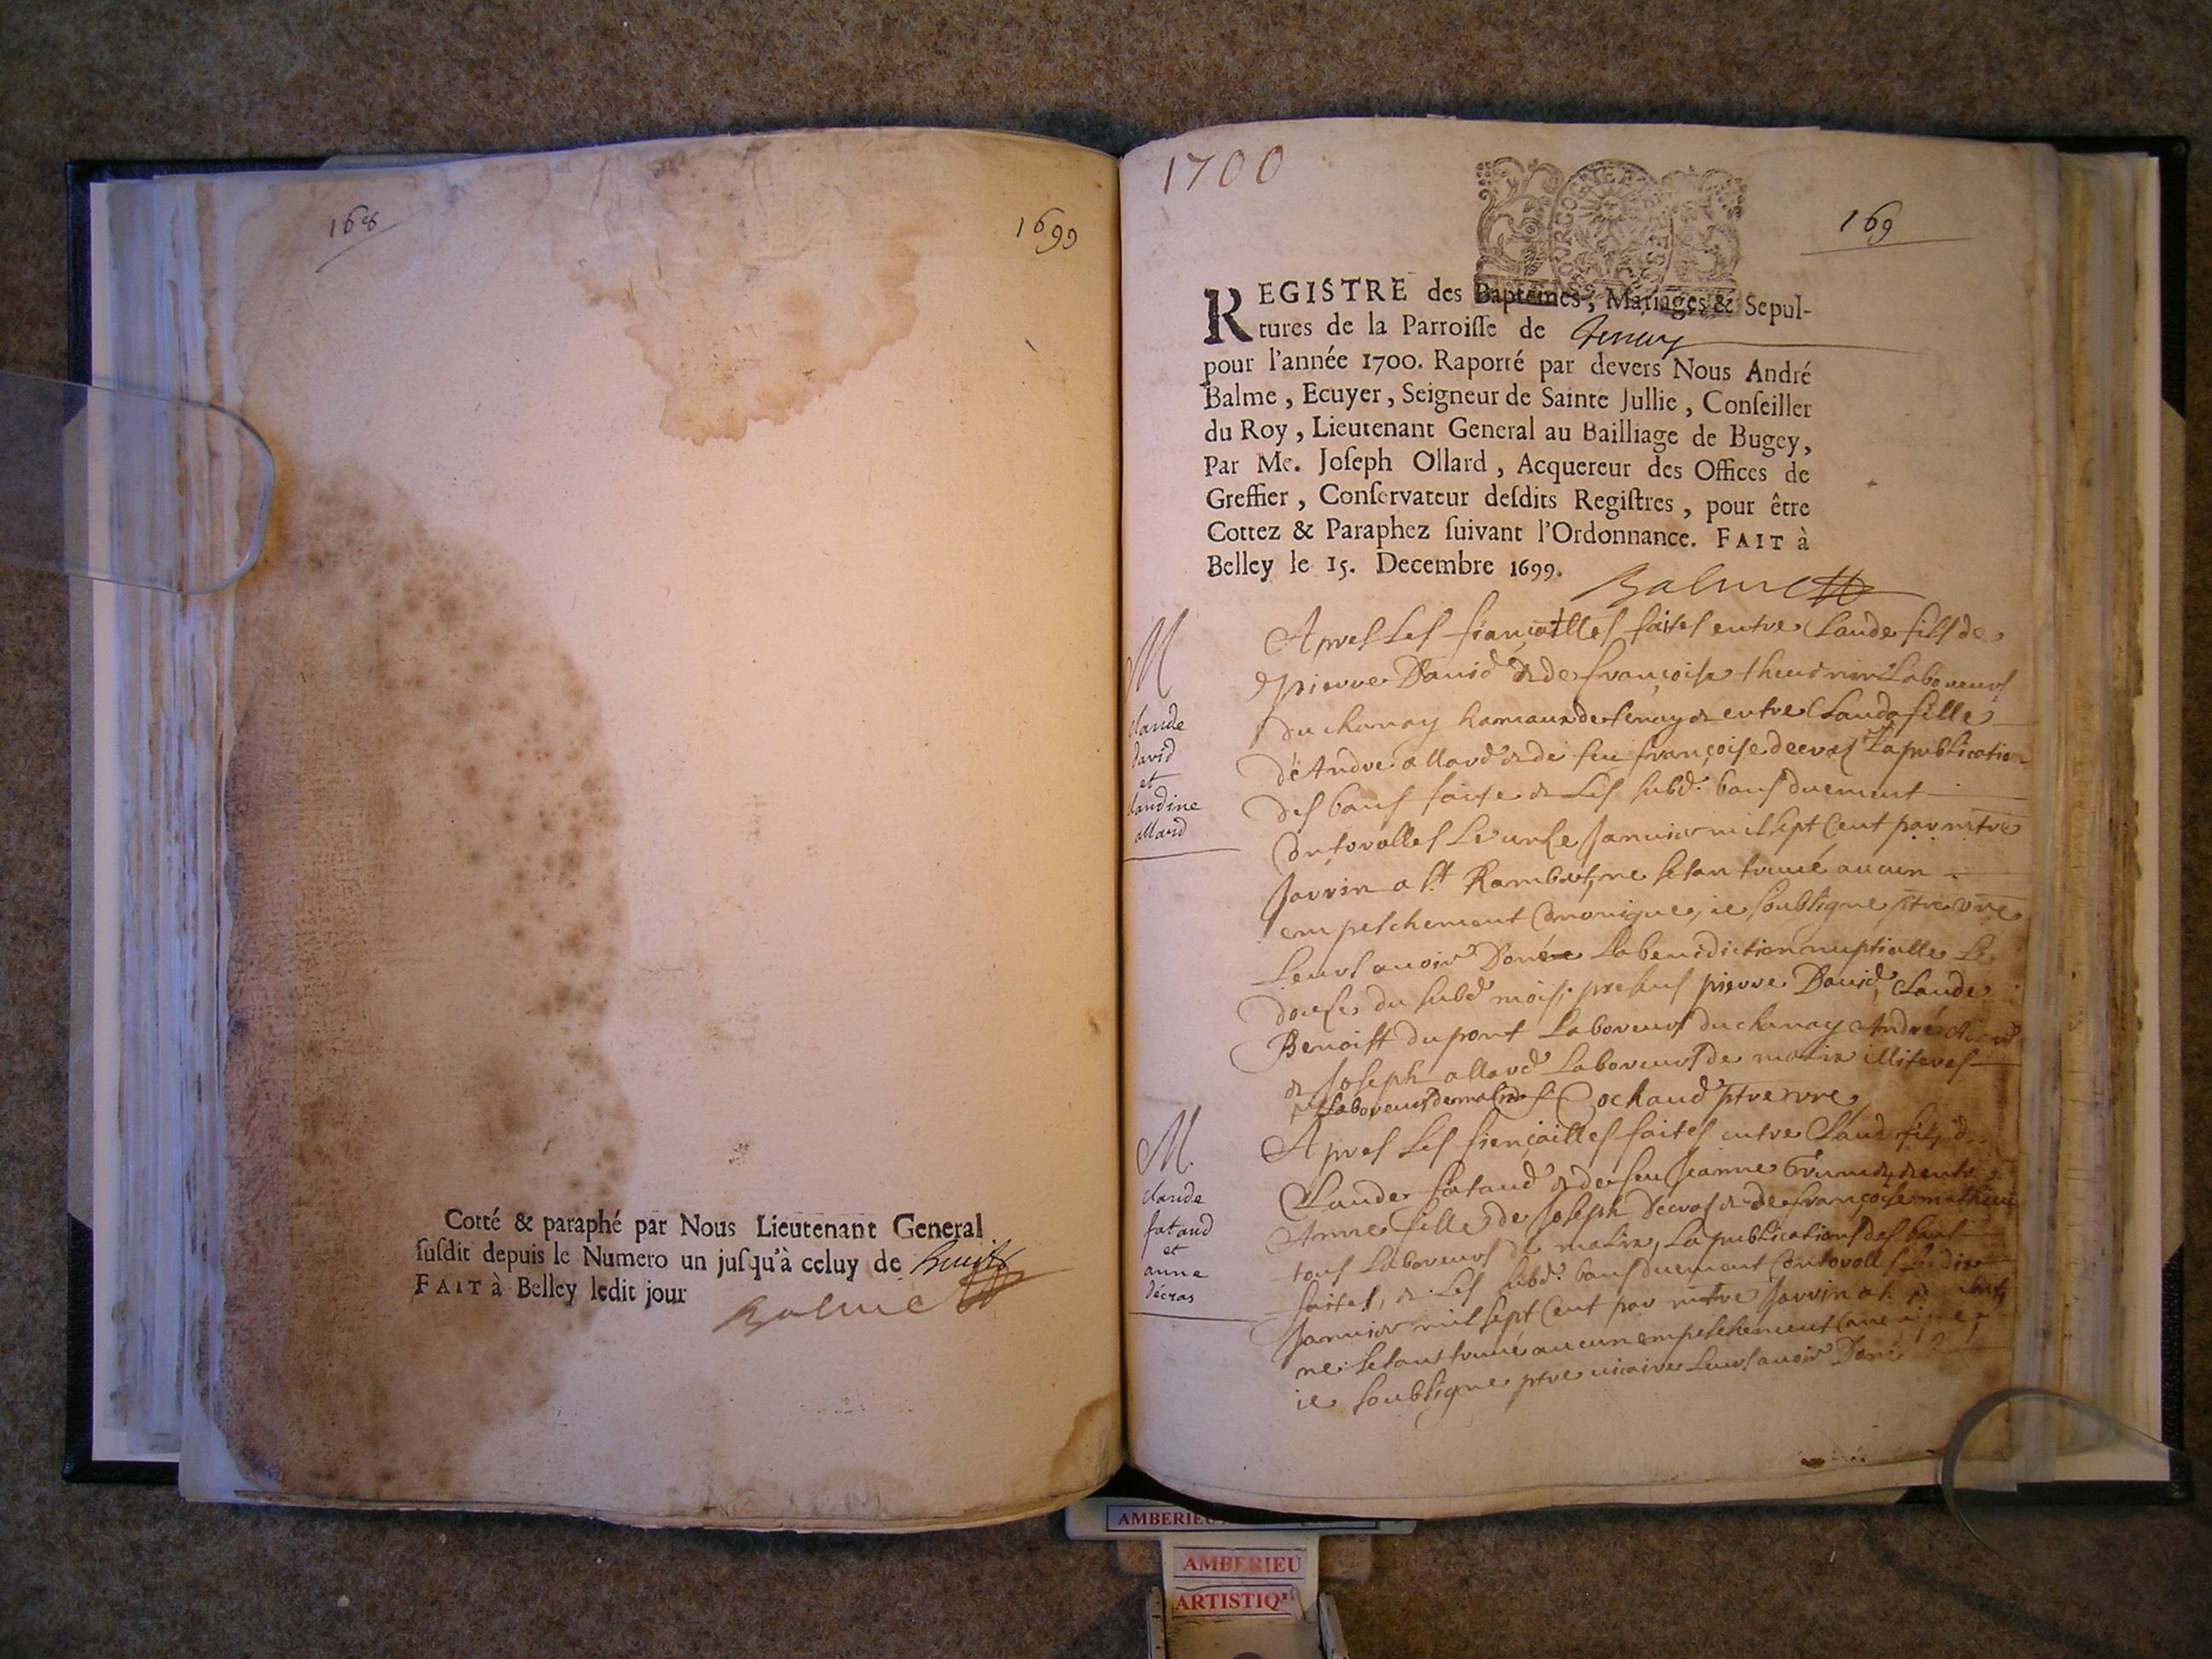 168
1699
Cotté & paraphé par Nous Lieutenant General
susdit depuis le Numero un jusqu'à celuy de huit
FAIT à Belley ledit jour
Balme
1700
169
REGISTRE des Baptêmes, Mariages & Sepul-
tures de la Parroisse de Tenay
pour l'année 1700. Raporté par devers Nous André
Balme, Ecuyer, Seigneur de Sainte Jullie, Conseiller
du Roy, Lieutenant General au Bailliage de Bugey,
Par Me. Joseph Ollard, Acquereur des Offices de
Greffier, Conservateur desdits Registres, pour être
Cottez & Paraphez suivant l'Ordonnance. FAIT à
Belley le 15. Decembre 1699.
Balme
M
claude
david
et
claudine
allard
Apres les fiançailles faites entre Claude fils de
pierre David & de françoise laboreurs
du chanay hameau de tenay & entre Clauda fille
d'Andre allard & de feu françoise decras la publication
des bans faite & les subd. bans duement
controlles le unse Janvier mil sept cent par mtre
Jarrin a st Rambert, ne setan trouvé aucun
empeschement canonique, ie soubsigne ptre vre
leurs avoir Doné la benediction nuptialle le
douse du subd mois, presens pierre David, Claude
Benoist dupont laboreurs du chanay André
& Joseph allard laboreurs de malix illiteres
laboreurs de malix Cochand ptre vre
M.
claude
fataud
et
anne
décras
Apres les fiençailles faites entre Claude fils de
Claude fataud & de feu Jeanne & entre
Anne fille de Joseph Decras & de françoise mathieu
tous laboreurs de malix, la publication des bans
faites, & les subd. bans duement controlles le dix
Janvier mil sept cent par mtre Jarrin
ne setant trouvé aucun empeschement canonique,
ie soubsigne ptre vicaire leurs avoir Doné
AMBERIEU
AMBERIEU
ARTISTIQ